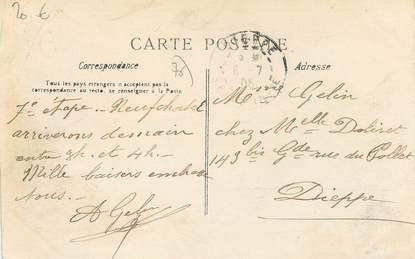 20 €
CARTE POSTALE
Correspondance
Adresse
Tous les pays étrangers n'acceptent pas la
correspondance au recto, se renseigner à la Poste
76
7e étape - Neufchatel
arriverons demain
entre 3h. et 4h. -
Mille baisers
Nous. -
A Gelin
Mme Gelin
chez Melle Doliset
143 bis Gde rue du Pollet
Dieppe